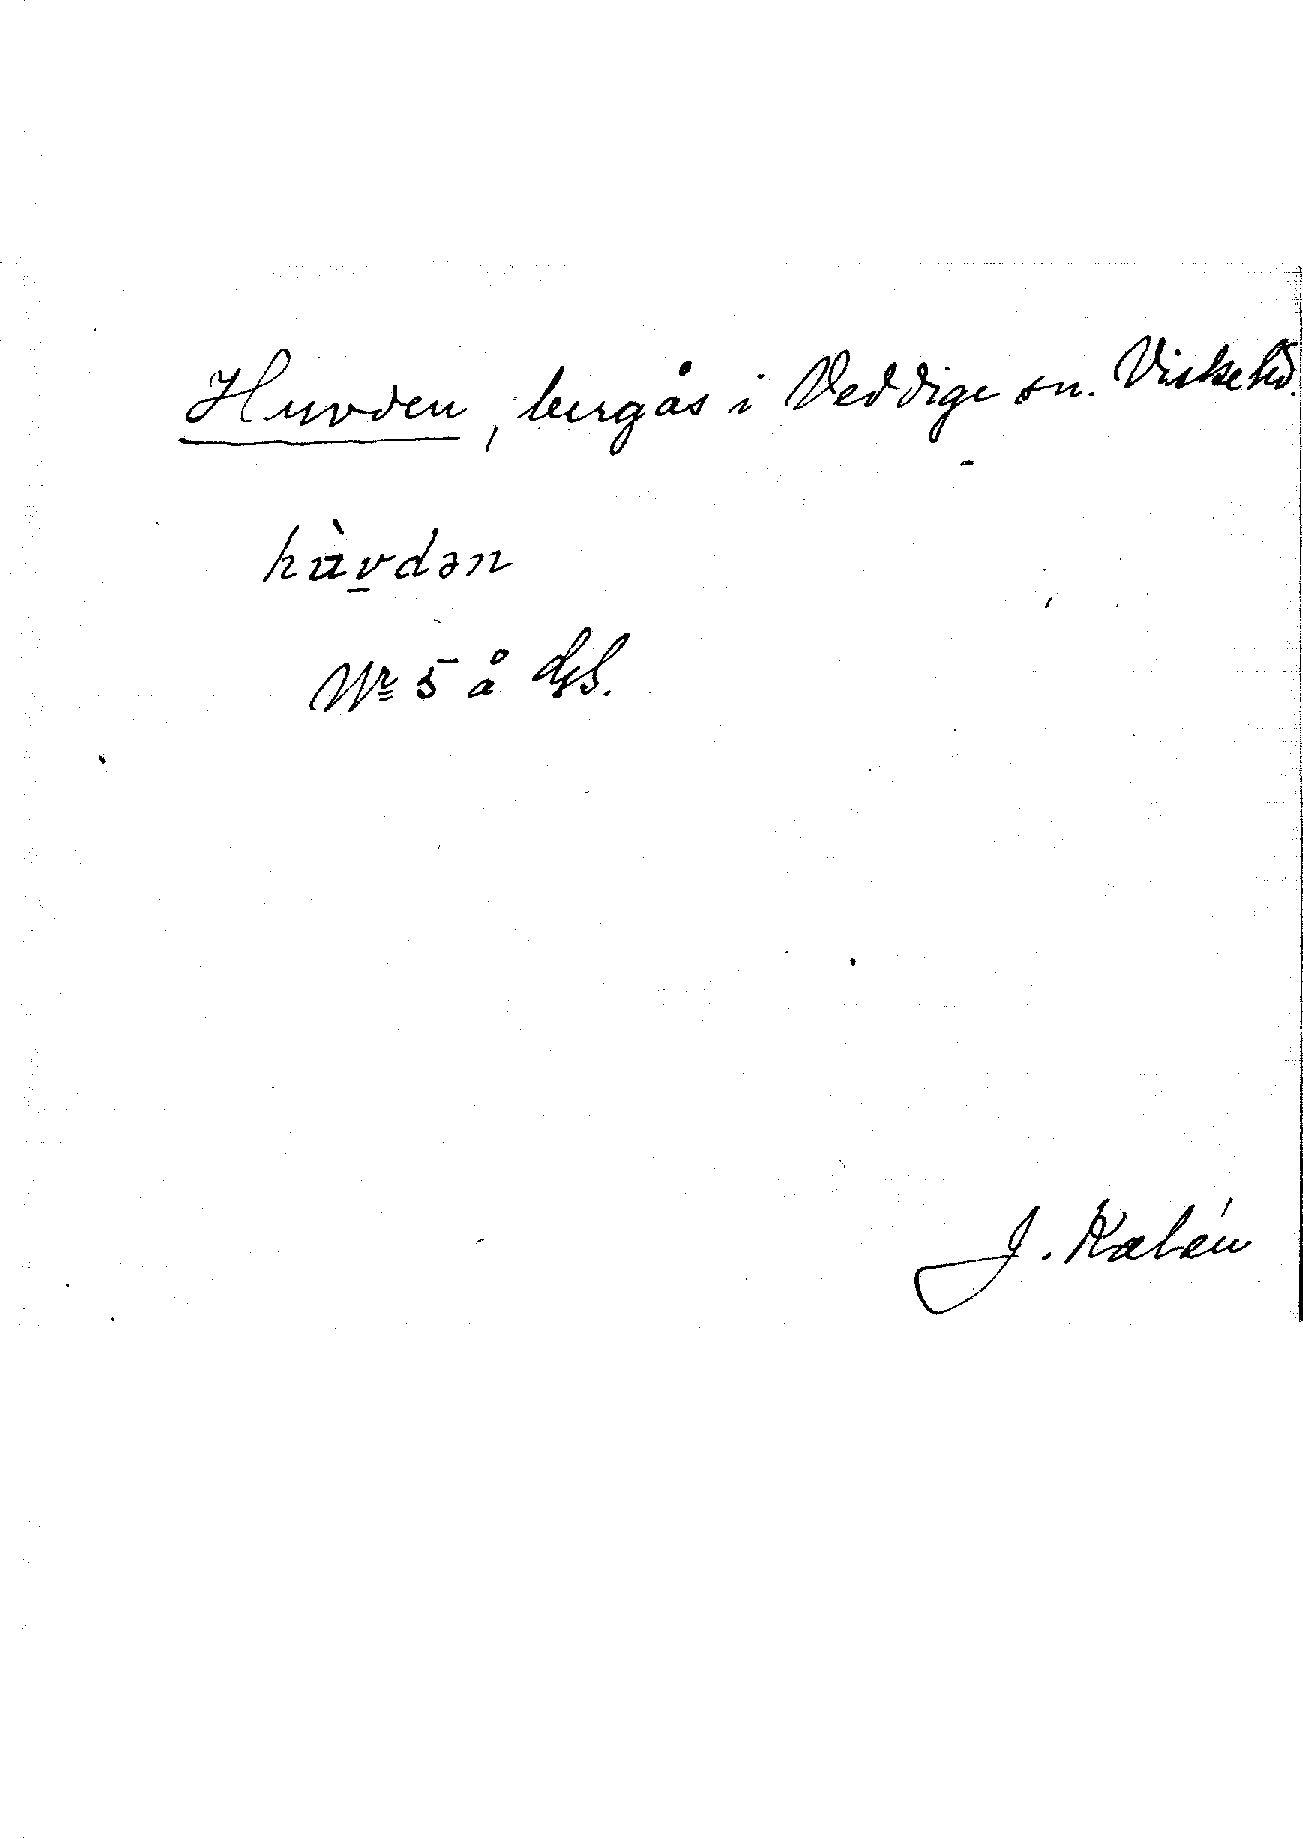 Huvden, bergås i Veddige sn. Viske hd.
hùvdən
Nr 5 å
J. Kalén